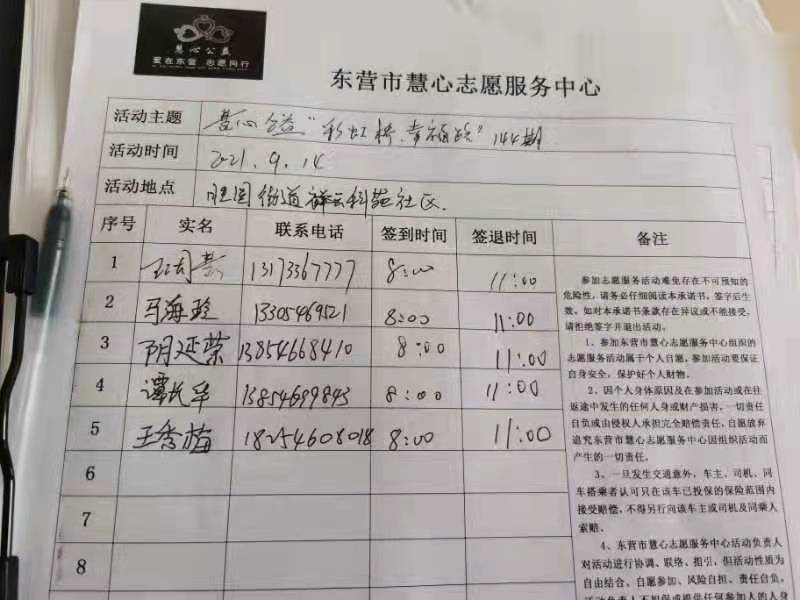 慧心公益
爱在东营 志愿同行
东营市慧心志愿服务中心
活动主题 慧心公益"彩虹桥、幸福路"144期
活动时间 2021.9.14
活动地点 胜园街道祥云科苑社区.
序号 实名 联系电话 签到时间 签退时间 备注
1 13173367777 8:00 11:00
2 马海玲 13305469521 8:00 11:00
3 阴延荣 13854668410 8:00 11:00
4 谭长华 13854699843 8:00 11:00
5 王秀梅 18254608018 8:00 11:00
6
7
8
参加志愿服务活动难免存在不可预知的
危险性，请务必仔细阅读本承诺书，签字后生
效。如对本承诺书条款存在异议或不能接受，
请拒绝签字并退出活动。
1、参加东营市慧心志愿服务中心组织的
志愿服务活动属于个人自愿。参加活动要保证
自身安全，保护好个人财物。
2、因个人身体原因及在参加活动或在往
返途中发生的任何人身或财产损害，一切责任
自负或由侵权人承担完全赔偿责任，自愿放弃
追究东营市慧心志愿服务中心因组织活动而
产生的一切责任。
3、一旦发生交通意外，车主、司机、同
车搭乘者认可只在该车已投保的保险范围内
接受赔偿，不得另行向该车主或司机及同乘人
索赔。
4、东营市慧心志愿服务中心活动负责人
对活动进行协调、联络、指引，但活动性质为
自由结合、自愿参加、风险自担、责任自负。